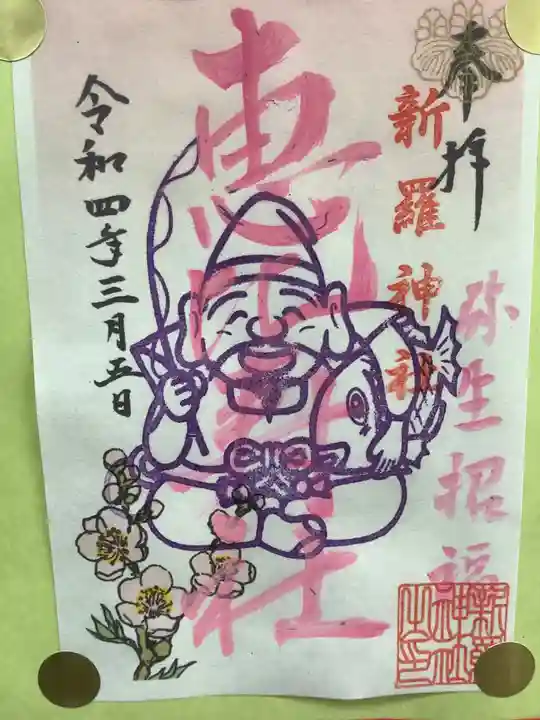 奉拝
新羅神社
弥生招福
恵比寿神社
令和四年三月五日
新羅神社之印